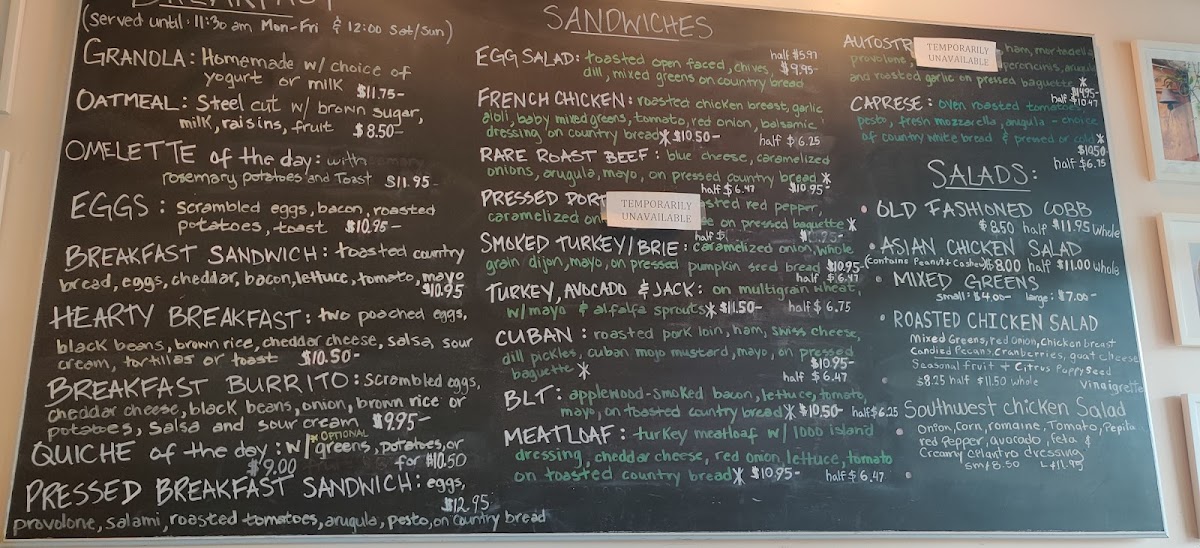 BREAKFAST
(served until: 11:30 am Mon-Fri & 12:00 Sat/Sun)
GRANOLA: Homemade w/ choice of
yogurt or milk $11.75-
OATMEAL: Steel cut w/ brown sugar,
milk, raisins, fruit $8.50-
OMELETTE of the day: with
rosemary potatoes and Toast $11.95-
EGGS: scrambled eggs, bacon, roasted
potatoes, toast $10.95-
BREAKFAST SANDWICH: toasted country
bread, eggs, cheddar, bacon, lettuce, tomato, mayo
$10.95
HEARTY BREAKFAST: two poached eggs,
black beans, brown rice, cheddar cheese, salsa, sour
cream, tortillas or toast $10.50-
BREAKFAST BURRITO: scrambled eggs,
cheddar cheese, black beans, onion, brown rice or
potatoes, salsa and sour cream $9.95-
*OPTIONAL
QUICHE of the day: w/ greens, potatoes, or
$9.00 for $10.50
PRESSED BREAKFAST SANDWICH: eggs,
$12.95
provolone, salami, roasted tomatoes, arugula, pesto, on country bread
SANDWICHES
EGG SALAD: toasted open faced, chives, half $5.97
$9.95-
dill, mixed greens on country bread
FRENCH CHICKEN: roasted chicken breast, garlic
aioli, baby mixed greens, tomato, red onion, balsamic
dressing on country bread* $10.50- half $6.25
RARE ROAST BEEF: blue cheese, caramelized
onions, arugula, mayo, on pressed country bread*
half $6.47 $10.95-
PRESSED PORT
TEMPORARILY
UNAVAILABLE
roasted red pepper,
caramelized on
on pressed baguette*
half $
SMOKED TURKEY/BRIE: caramelized onion, whole
grain dijon, mayo, on pressed pumpkin seed bread $10.95-
half $6.47
TURKEY, AVOCADO & JACK: on multigrain wheat,
w/mayo & alfalfa sprouts* $11.50- half $6.75
CUBAN: roasted pork loin, ham, swiss cheese,
dill pickles, cuban mojo mustard, mayo, on pressed
baguette* $10.95-
half $6.47
BLT: applewood-smoked bacon, lettuce, tomato,
mayo, on toasted country bread* $10.50- half $6.25
MEATLOAF: turkey meatloaf w/ 1000 island
dressing, cheddar cheese, red onion, lettuce, tomato
on toasted country bread* $10.95- half $6.47
AUTOSTR
TEMPORARILY
UNAVAILABLE
ham, mortadella
provolone,
and roasted garlic on pressed baguette*
half $10.47
CAPRESE: oven roasted tomatoes,
pesto, fresh mozzarella, arugula - choice
of country white bread & pressed or cold*
$10.50
half $6.75
SALADS:
• OLD FASHIONED COBB
$8.50 half $11.95 whole
• ASIAN CHICKEN SALAD
(contains Peanut & Cashew) $8.00 half $11.00 whole
• MIXED GREENS
small: $4.00- large: $7.00-
• ROASTED CHICKEN SALAD
Mixed Greens, red Onion, Chicken breast
Candied Pecans, Cranberries, goat cheese
Seasonal Fruit + Citrus Poppyseed
$8.25 half $11.50 whole vinaigrette
• Southwest chicken Salad
Onion, Corn, romaine, Tomato, Pepita
red Pepper, avocado, feta &
Creamy cilantro dressing
sm $8.50 L $11.95